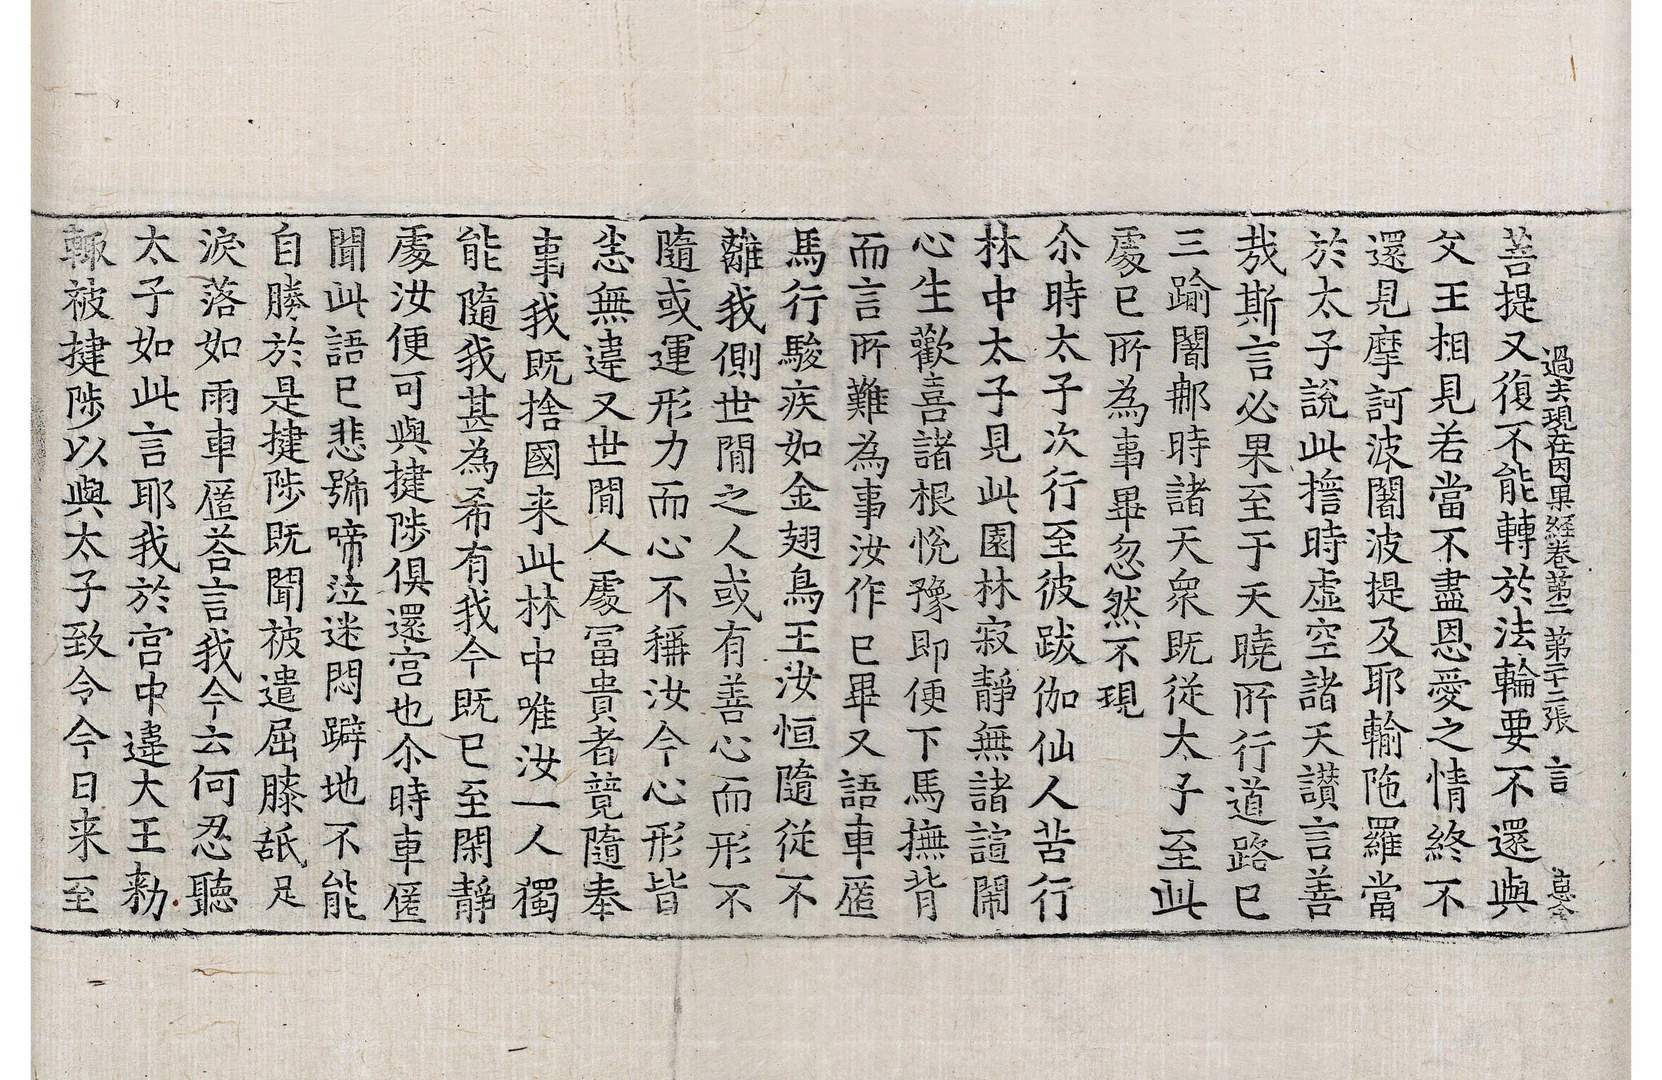 菩提又復不能轉於法輪要不還與
過去現在因果經卷第二 第二十二張 言
父王相見若當不盡恩愛之情終不
還見摩訶波闍波提及耶輸陁羅當
於太子說此誓時虛空諸天讃言善
㢤斯言必果至于天曉所行道路已
三踰闍郍時諸天衆既従太子至此
處已所為事畢忽然不現
尒時太子次行至彼跋伽仙人苦行
林中太子見此園林寂靜無諸諠閙
心生歡喜諸根悅豫即便下馬撫背
而言所難為事汝作已畢又語車匿
馬行駿疾如金翅鳥王汝恒隨従不
離我側世閒之人或有善心而形不
隨或運形力而心不稱汝今心形皆
悉無違又世閒人處冨貴者競隨奉
事我既捨國来此林中唯汝一人獨
能隨我甚為希有我今既已至閑靜
處汝便可與揵陟俱還宫也尒時車匿
聞此語已悲號啼泣迷悶躃地不能
自勝於是揵陟既聞被遣屈膝舐足
淚落如雨車匿荅言我今云何忍聽
太子如此言耶我於宫中違大王勑
輙被揵陟以與太子致令今日来至